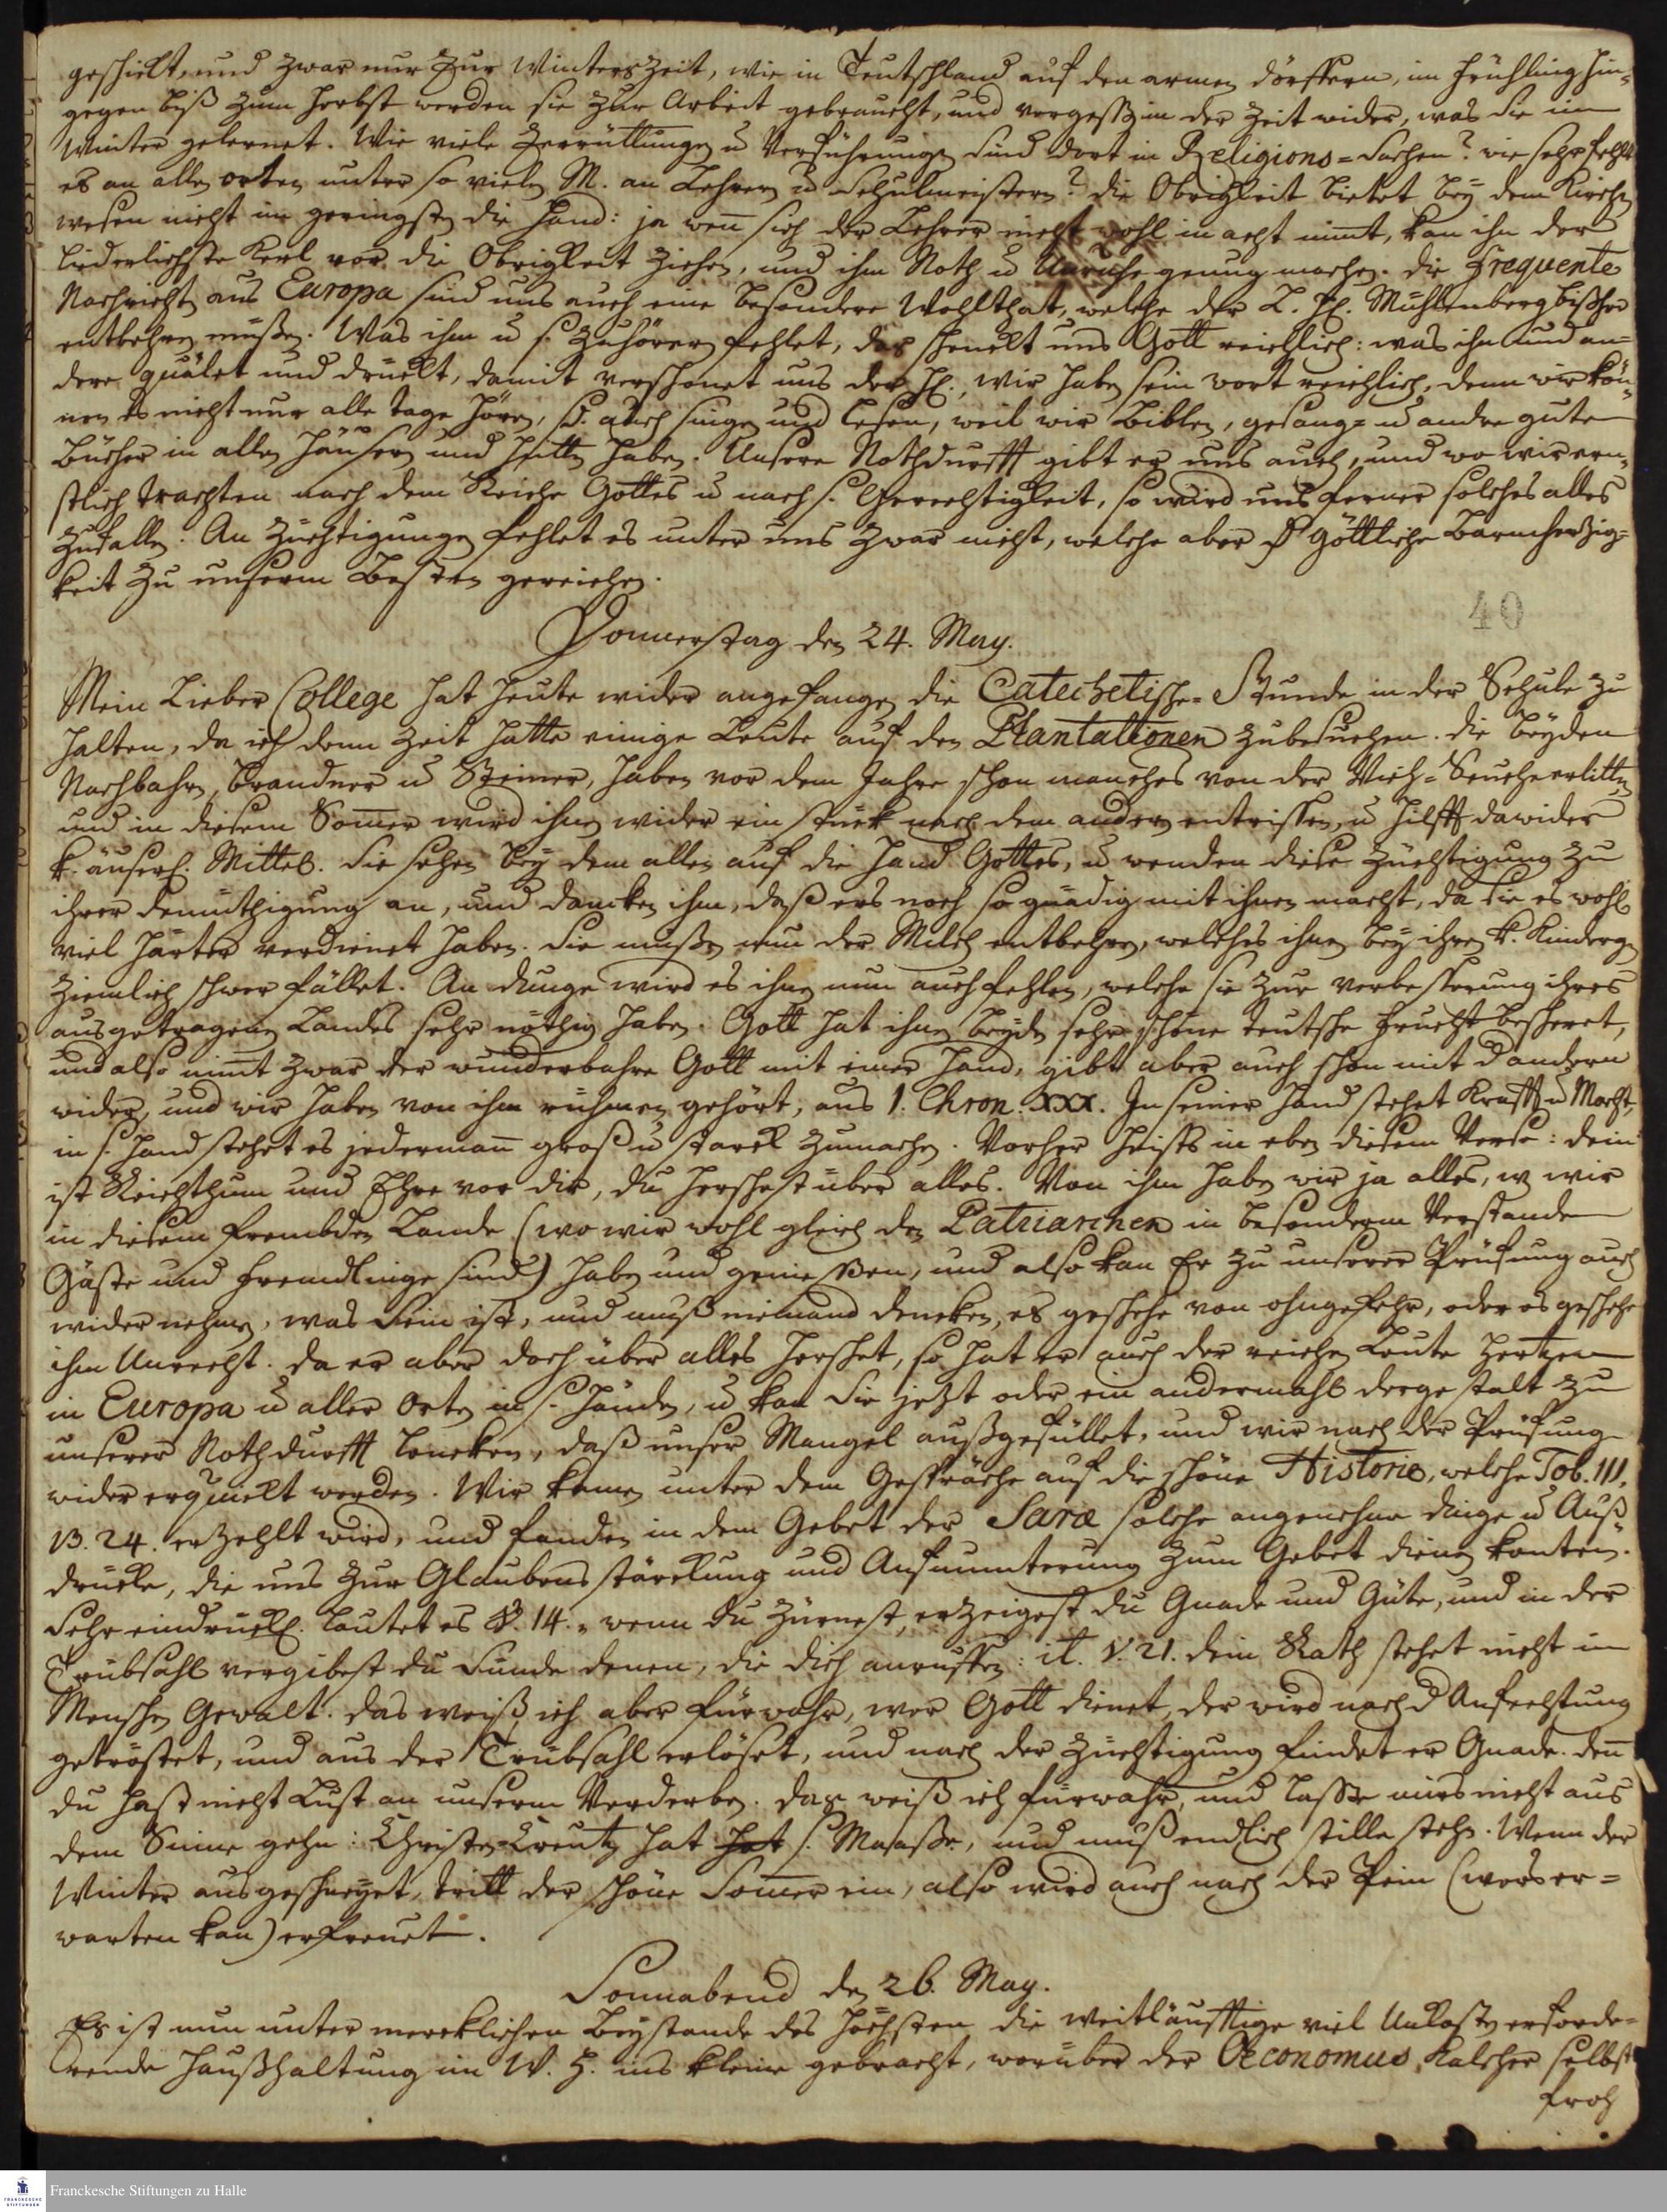 geschickt, und zwar nur zur Winterszeit, wie in Teutschland auf den armen Dörffern, im Frühling hin-
gegen biß zum Herbst werden sie zur Arbeit gebraucht, und vergeßen in der Zeit wider, was sie im
Winter gelernet. Wie viele Zerrüttungen u Verführungen sind dort in Religions=Sachen? wie sehr fehlt
es an allen orten unter so vielen M. an Lehrern u Schulmeistern? die Obrigkeit bietet bey dem Kirchen
wesen nicht im geringsten die Hand: ja wen̄ sich der Lehrer nicht wohl in acht nim̄t, kan ihn der
liederlichste Kerl vor die Obrigkeit ziehen, und ihm Noth u Unruhe genug machen. Die Frequente
Nachrichten aus Europa sind uns auch eine besondere Wohlthat, welche der L. H. Mühlenberg bißher
entbehren müßen. Was ihm u s. Zuhörern fehlet, das schenckt uns Gott reichlich: was ihn und an-
dere quälet und drückt, damit verschonet uns der H. Wir haben sein wort reichlich, denn wir kön-
nen es nicht nur alle tage hören, sd. auch singen und lesen, weil wir Biblen, gesang= u andre gute
Bücher in allen Häusern und Hütten haben. Unsere Nothdurfft gibt er uns auch, und wo wir ern-
stlich trachten nach dem Reiche Gottes u nach s. Gerechtigkeit, so wird uns ferner solches alles
zufallen. An Züchtigungen fehlet es unter uns zwar nicht, welche aber d. Göttliche Barmherzig=
keit zu unserm Besten gereichen.
40
Donnerstag den 24. May.
Mein Lieber College hat heute wider angefangen die Catechetische= Stunde in der Schule zu
halten, da ich denn Zeit hatte einige Leute auf den Plantationen zubesuchen. Die beyden
Nachbahrn, Brandner u Steiner, haben vor dem Jahre schon manches von der Vieh=Seuche erlitten,
und in diesem Som̄er wird ihnen wider ein stück nach dem andern entrissen, u hilfft dawider
k. äuserl. Mittel. Sie sehen bey dem allen auf die Hand Gottes, u wenden diese Züchtigung zu
ihrer demüthigung an, und dancken ihm, daß ers noch so gnädig mit ihnen macht, da sie es wohl
viel härter verdienet haben. Sie müßen nun der Milch entbehren, welches ihnen bey ihren k. Kindergen
ziemlich schwer fället. An dunge wird es ihnen nun auch fehlen, welche sie zur verbesserung ihres
ausgetragenen Landes sehr nöthig haben. Gott hat ihnen beyden sehr schöne teutsche Frucht bescheret,
und also nim̄t zwar der wunderbahre Gott mit einer Hand, gibt aber auch schon mit d andern
wider, und wir haben von ihm rühmen gehört, aus 1. Chron. XXX. In seiner Hand stehet Krafft u Macht,
in s. Hand stehet es jederman̄ groß u starck zumachen. Vorher heists in eben diesem Verse: dein
ist Reichthum und Ehre vor dir, du herschest über alles. Von ihm haben wir ja alles, w wir
in diesem frembden Lande (wo wir wohl gleich den Patriarchen in besonderm Verstande
Gäste und Fremdlinge sind) haben und genießen, und also kan Er zu unserer Prüfung auch
wider nehmen, was sein ist, und muß niemand dencken, es geschehe von ohngefehr, oder es geschehe
ihm Unrecht. Da er aber doch über alles herschet, so hat er auch der reichen Leute Hertzen
in Europa u aller Orten in s. Händen, u kan sie jetzt oder ein andermahl dergestalt zu
unserer Nothdurfft lencken, daß unser Mangel außgefüllet, und wir nach der Prüfung
wider erquickt werden. Wir kamen unter dem Gespräche auf die schöne Historie, welche Tob. III,
13. 24. erzehlt wird, und fanden in dem Gebet der Saræ solche angenehme dinge u Auß-
drücke, die uns zur Glaubensstärckung und Aufmunterung zum Gebet dienen konten.
Sehr eindrückl. lautet es v. 14. „wenn du zürnest, erzeigest du Gnade und Güte, und in der
Trübsahl vergibest du Sünde denen, die dich anruffen: it. v. 21. dein Rath stehet nicht in
Menschen Gewalt. Das weiß ich aber fürwahr, wer Gott dienet, der wird nach d Anfechtung
getröstet, und aus der Trübsahl erlöset, und nach der Züchtigung findet er Gnade. den̄
du hast nicht Lust an unserm Verderben. Das weiß ich fürwahr, und lasse mirs nicht aus
dem Sinne gehn: Christen=Creutz hat hat s. Maaße, und muß endlich stille stehn. Wenn der
Winter ausgeschneyet, tritt der schöne Som̄er ein, also wird auch nach der Pein (wers er=
warten kan) erfreuet.
Sonnabend den 26. May.
Es ist nun unter mercklichen Beystande des Höchsten die weitläufftige viel Unkosten erforde=
rende Haußhaltung im W. H. ins kleine gebracht, worüber der Oeconomus Kalcher selbst
froh
Franckesche Stiftungen zu Halle